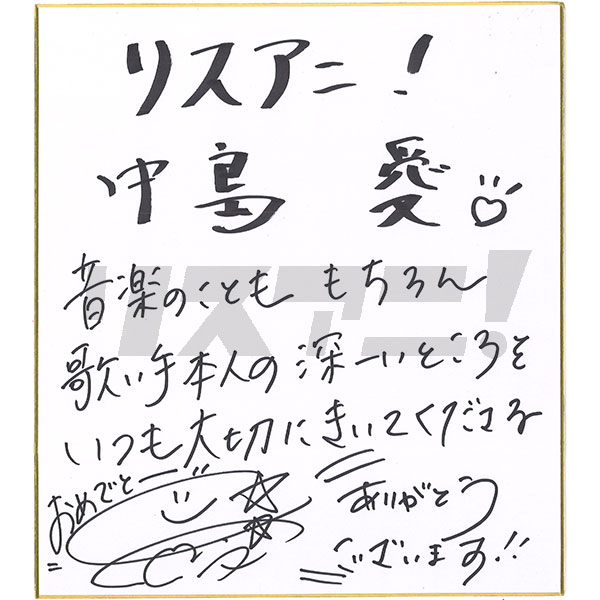 リスアニ！
中島 愛
音楽のことも もちろん
歌い手本人の 深ーいところを
いつも大切に きいてくださる
おめでとー
ありがとう
ございます!!
リスアニ！